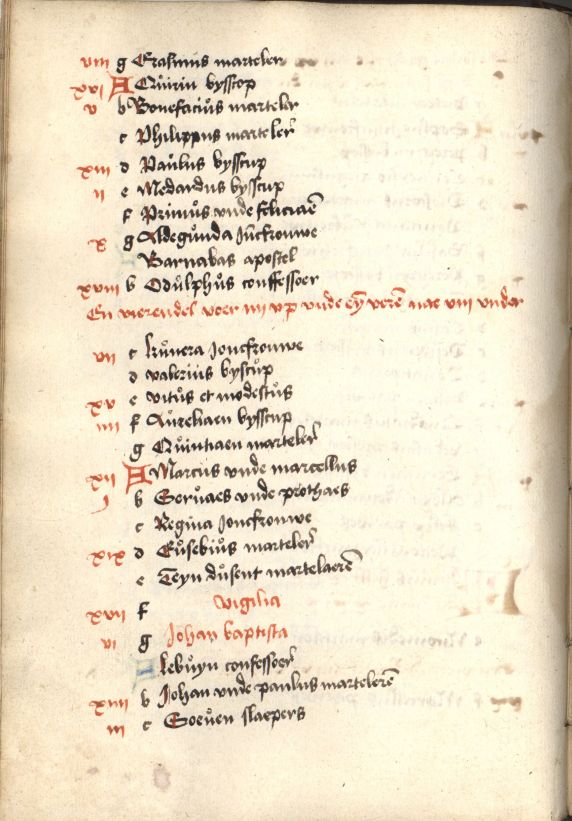 viii g Erasmus marteler
xvi A Quirin bysscop
v b Bonefacius marteler
c Philippus marteler
xiii d Paulus bysscup
ii e Medardus bysscup
f Primus unde feliciaen
x g Aldegunda juncfrouwe
Barnabas apostel
xviii b Odulphus confessoer
En vierendel voer iiii up unde eyn veren nae viii under
vii c kunera joncfrouwe
d valerius byscup
xv e vitus et modestus
iiii f Aureliaen bysscup
g Quintiaen marteler
xii A Marcus unde marcellus
i b Gervaes unde prothaes
c Regina joncfrouwe
xix d Eusebius marteler
e Teyn dusent martelaeren
xvii f Vigilia
vi g Johan baptista
A lebuyn confessoer
xiiii b Johan unde paulus marteleren
iii c Soeven slaepers